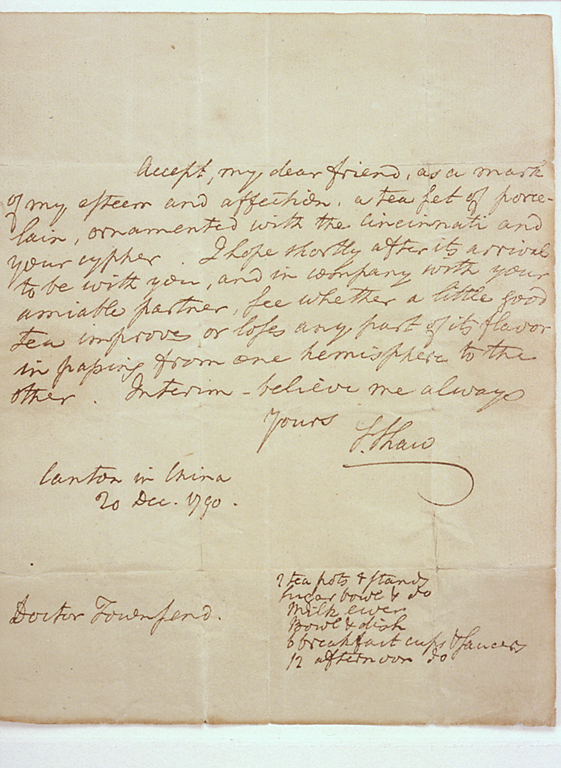 Accept, my dear friend, as a mark
of my esteem and affection, a tea set of porce-
lain, ornamented with the Cincinnati and
your cypher. I hope shortly after its arrival
to be with you, and in company with your
amiable partner, see whether a little good
tea improves or loses any part of its flavor
in passing from one hemisphere to the
other. Interim - believe me always
yours
S. Shaw
Canton in China
20 Dec. 1790.
Doctor Townsend.
2 tea pots & stands
Sugar bowl & do
Milk ewer
Bowl & dish
6 breakfast cups & saucers
12 afternoon do